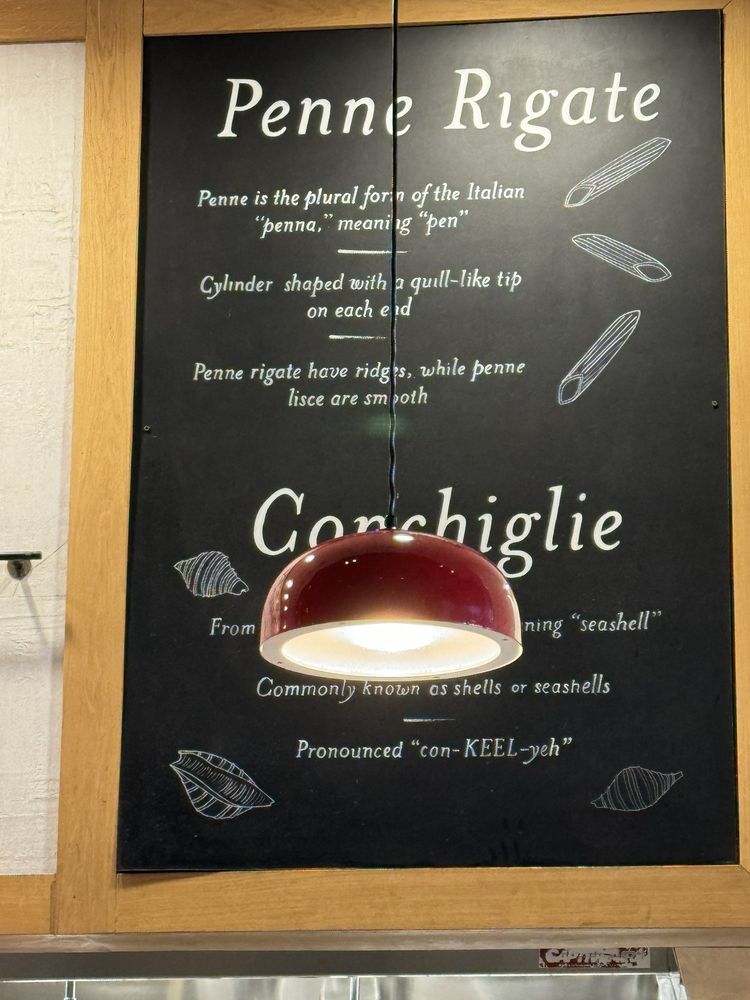 Penne Rigate
Penne is the plural form of the Italian
“penna,” meaning “pen”
Cylinder shaped with a quill-like tip
on each end
Penne rigate have ridges, while penne
lisce are smooth
Conchiglie
From “seashell”
Commonly known as shells or seashells
Pronounced “con-KEEL-yeh”